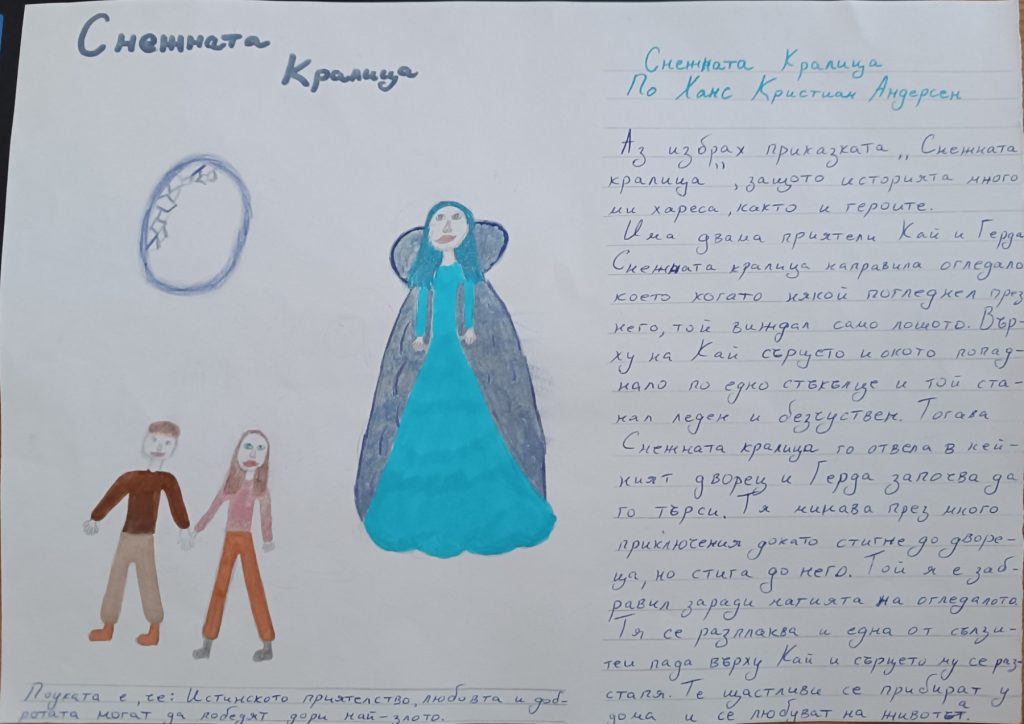 Снежната
Кралица
Снежната Кралица
По Ханс Кристиан Андерсен
Аз избрах приказката „Снежната
кралица", защото историята много
ми хареса, както и героите.
Има двама приятели Кай и Герда
Снежната кралица направила огледало
което когато някой погледнел през
него, той виждал само лошото. Вър-
ху на Кай сърцето и окото попад-
нало по едно стъкълце и той ста-
нал леден и безчуствен. Тогава
Снежната кралица го отвела в ней-
ният дворец и Герда започва да
го търси. Тя минава през много
приключения докато стигне до дворе-
ца, но стига до него. Той я е заб-
равил заради магията на огледалото
Тя се разплаква и една от сълзи-
теи пада върху Кай и сърцето му се раз-
стапя. Те щастливи се прибират у
дома и се любуват на живота.
Поуката е, че: Истинското приятелство, любовта и доб-
ротата могат да победят дори най-злото.